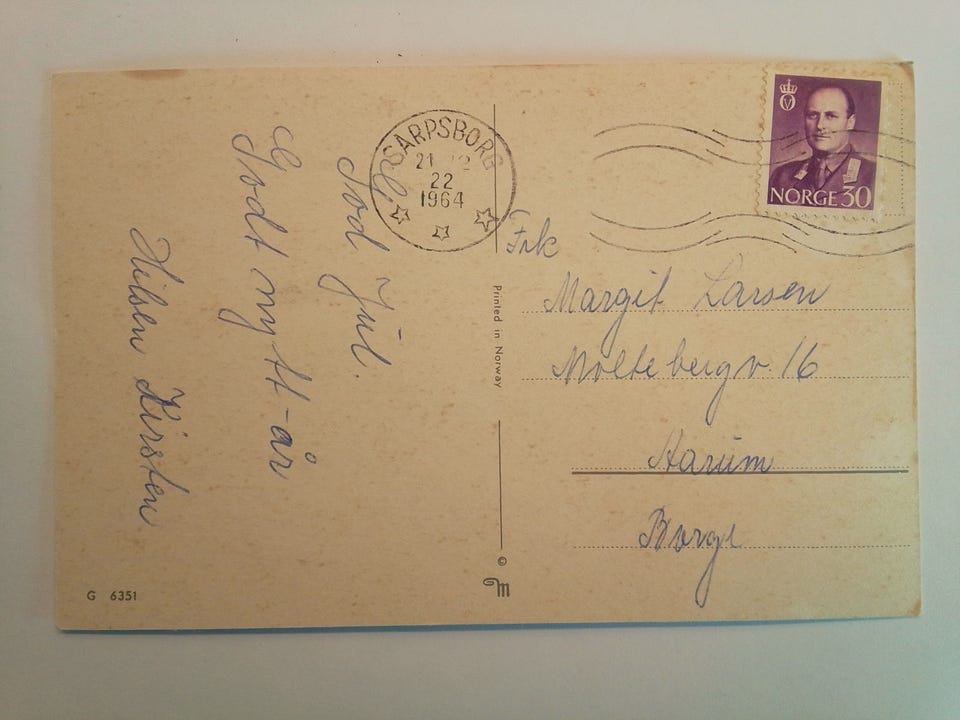 God Jul.
Godt nytt-år
Hilsen Kirsten
G 6351
SARPSBORG
21 12
22
1964
Printed in Norway
©
M
NORGE 30
Frk
Margit Larsen
Moltebergv. 16
Borge